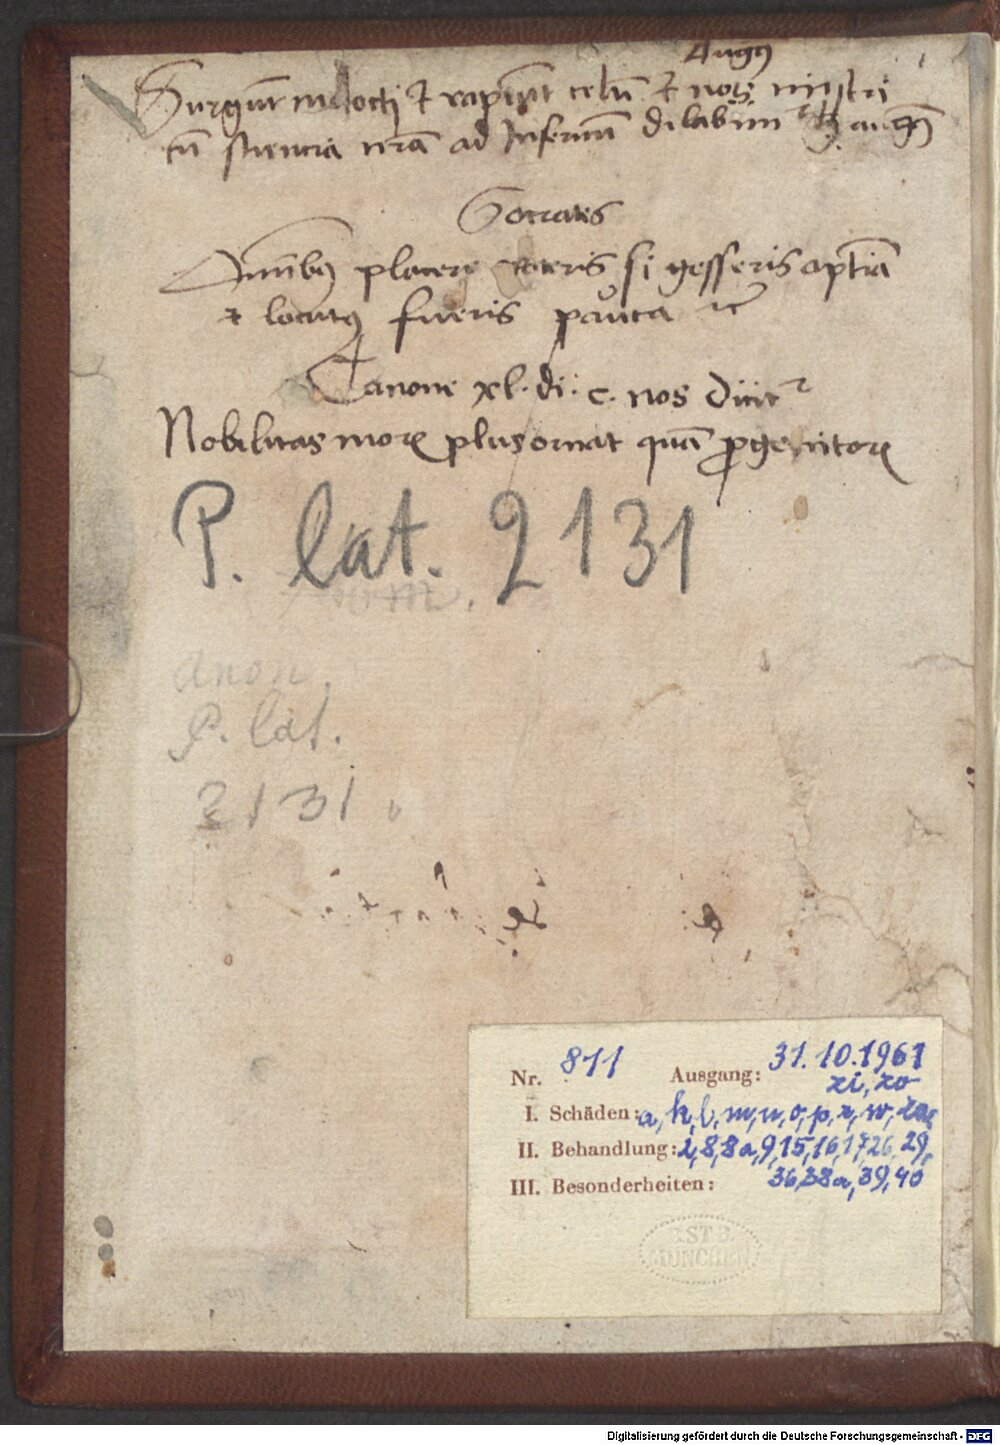 Augꝰ
Surgūt indocti ⁊ rapiūt celū ⁊ nos mistri
cū sciencia nrā ad Infernū dilabim̄ augꝰ
Socrates
Omībꝰ placere poteris si gesseris optīa
⁊ locutꝰ fueris pauca ⁊c
Canone xl. di. c. nos dicit᷑
Nobilitas moꝝ plus ornat quā ꝓgenitoꝝ
P. lat. 2131
anon.
P. lat.
2131
Nr. 811 Ausgang: 31.10.1961
zi, zo
I. Schäden: a, k, l, m, n, o, p, r, w,
II. Behandlung: 2, 8, 8a, 9, 15, 16, 17, 26, 29,
III. Besonderheiten: 36, 38a, 39, 40
MÜNCHEN
Digitalisierung gefördert durch die Deutsche Forschungsgemeinschaft - DFG